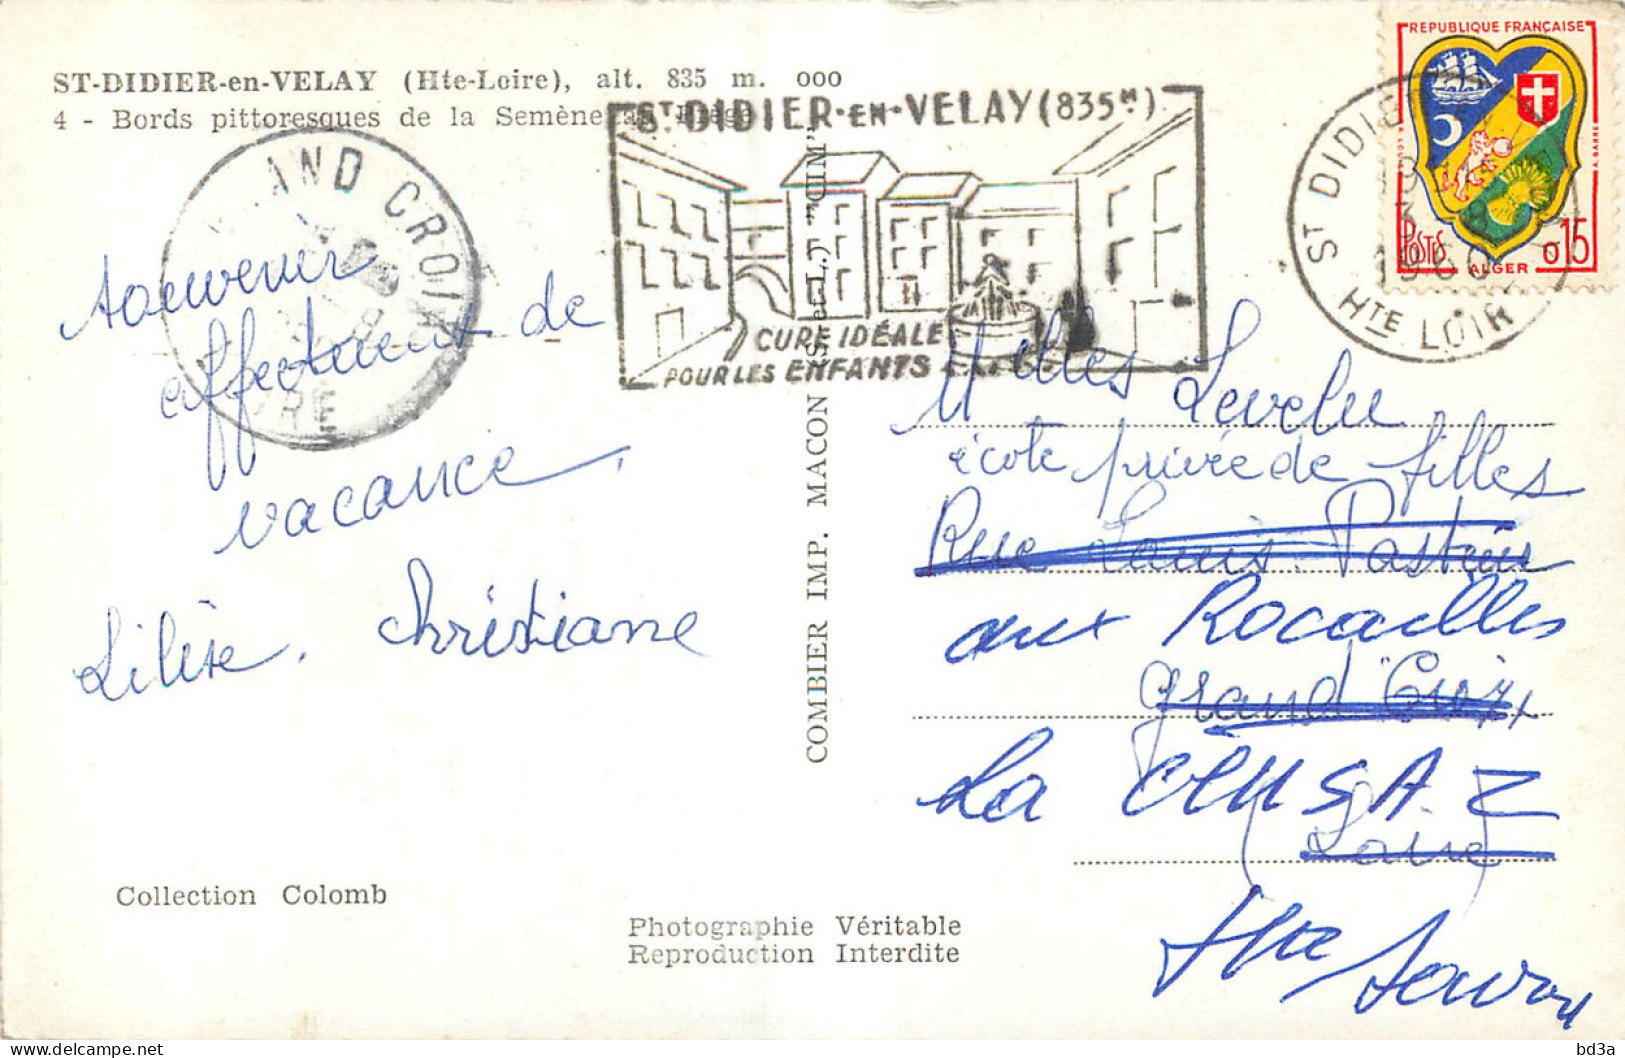 ST-DIDIER-en-VELAY (Hte-Loire), alt. 835 m. ooo
4 - Bords pittoresques de la Semène
ST DIDIER-EN-VELAY (835M)
CURE IDÉALE
POUR LES ENFANTS
REPUBLIQUE FRANÇAISE
POSTES
ALGER
0,15
ST DIDIER
1960
HTE LOIRE
GRAND CROIX
LOIRE
souvenir
affectueux de
vacance,
Lilise. Christiane
COMBIER IMP. MACON (S.-et-L.) "CIM"
Melles Levelu
école privée de filles
Rue Louis Pasteur
aux Rocailles
Grand Croix
La CLUSAZ
Loire
Hte Savoie
Collection Colomb
Photographie Véritable
Reproduction Interdite
bd3a